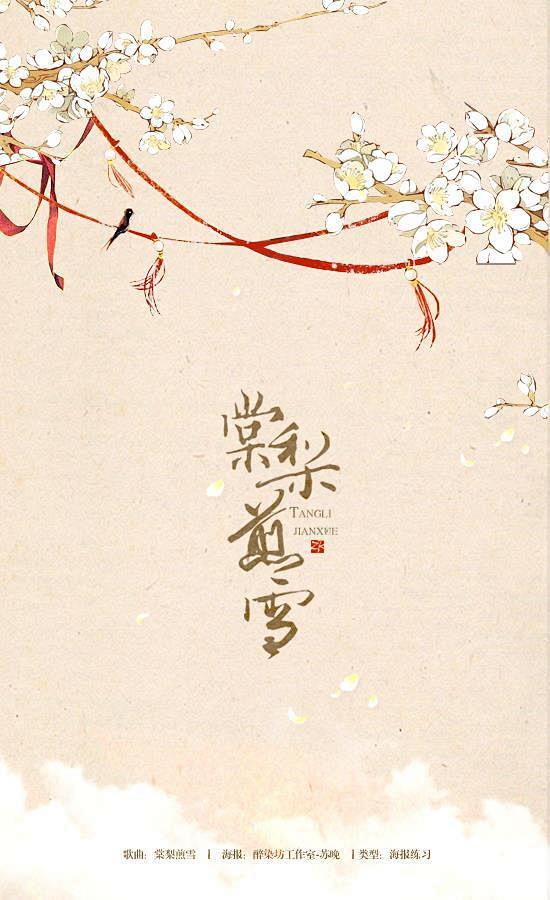 棠梨煎雪
TANGLI
JIANXUE
歌曲：棠梨煎雪 | 海报：醉染坊工作室-苏晚 | 类型：海报练习